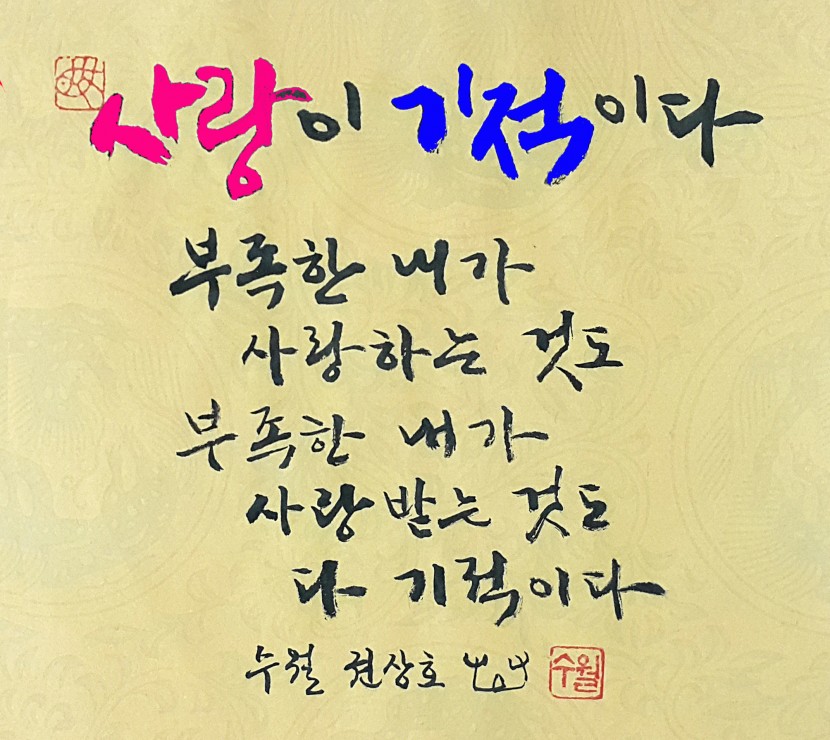 사랑이 기적이다
부족한 내가
사랑하는 것도
부족한 내가
사랑받는 것도
다 기적이다
수월 권상호
수월